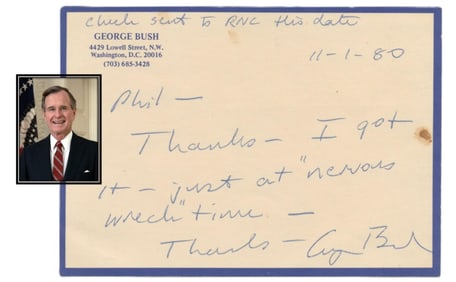 Check sent to RNC this date
GEORGE BUSH
4429 Lowell Street, N.W.
Washington, D.C. 20016
(703) 685-3428
11-1-80
Phil —
Thanks — I got
it — just at "nervous
wreck" time —
Thanks —